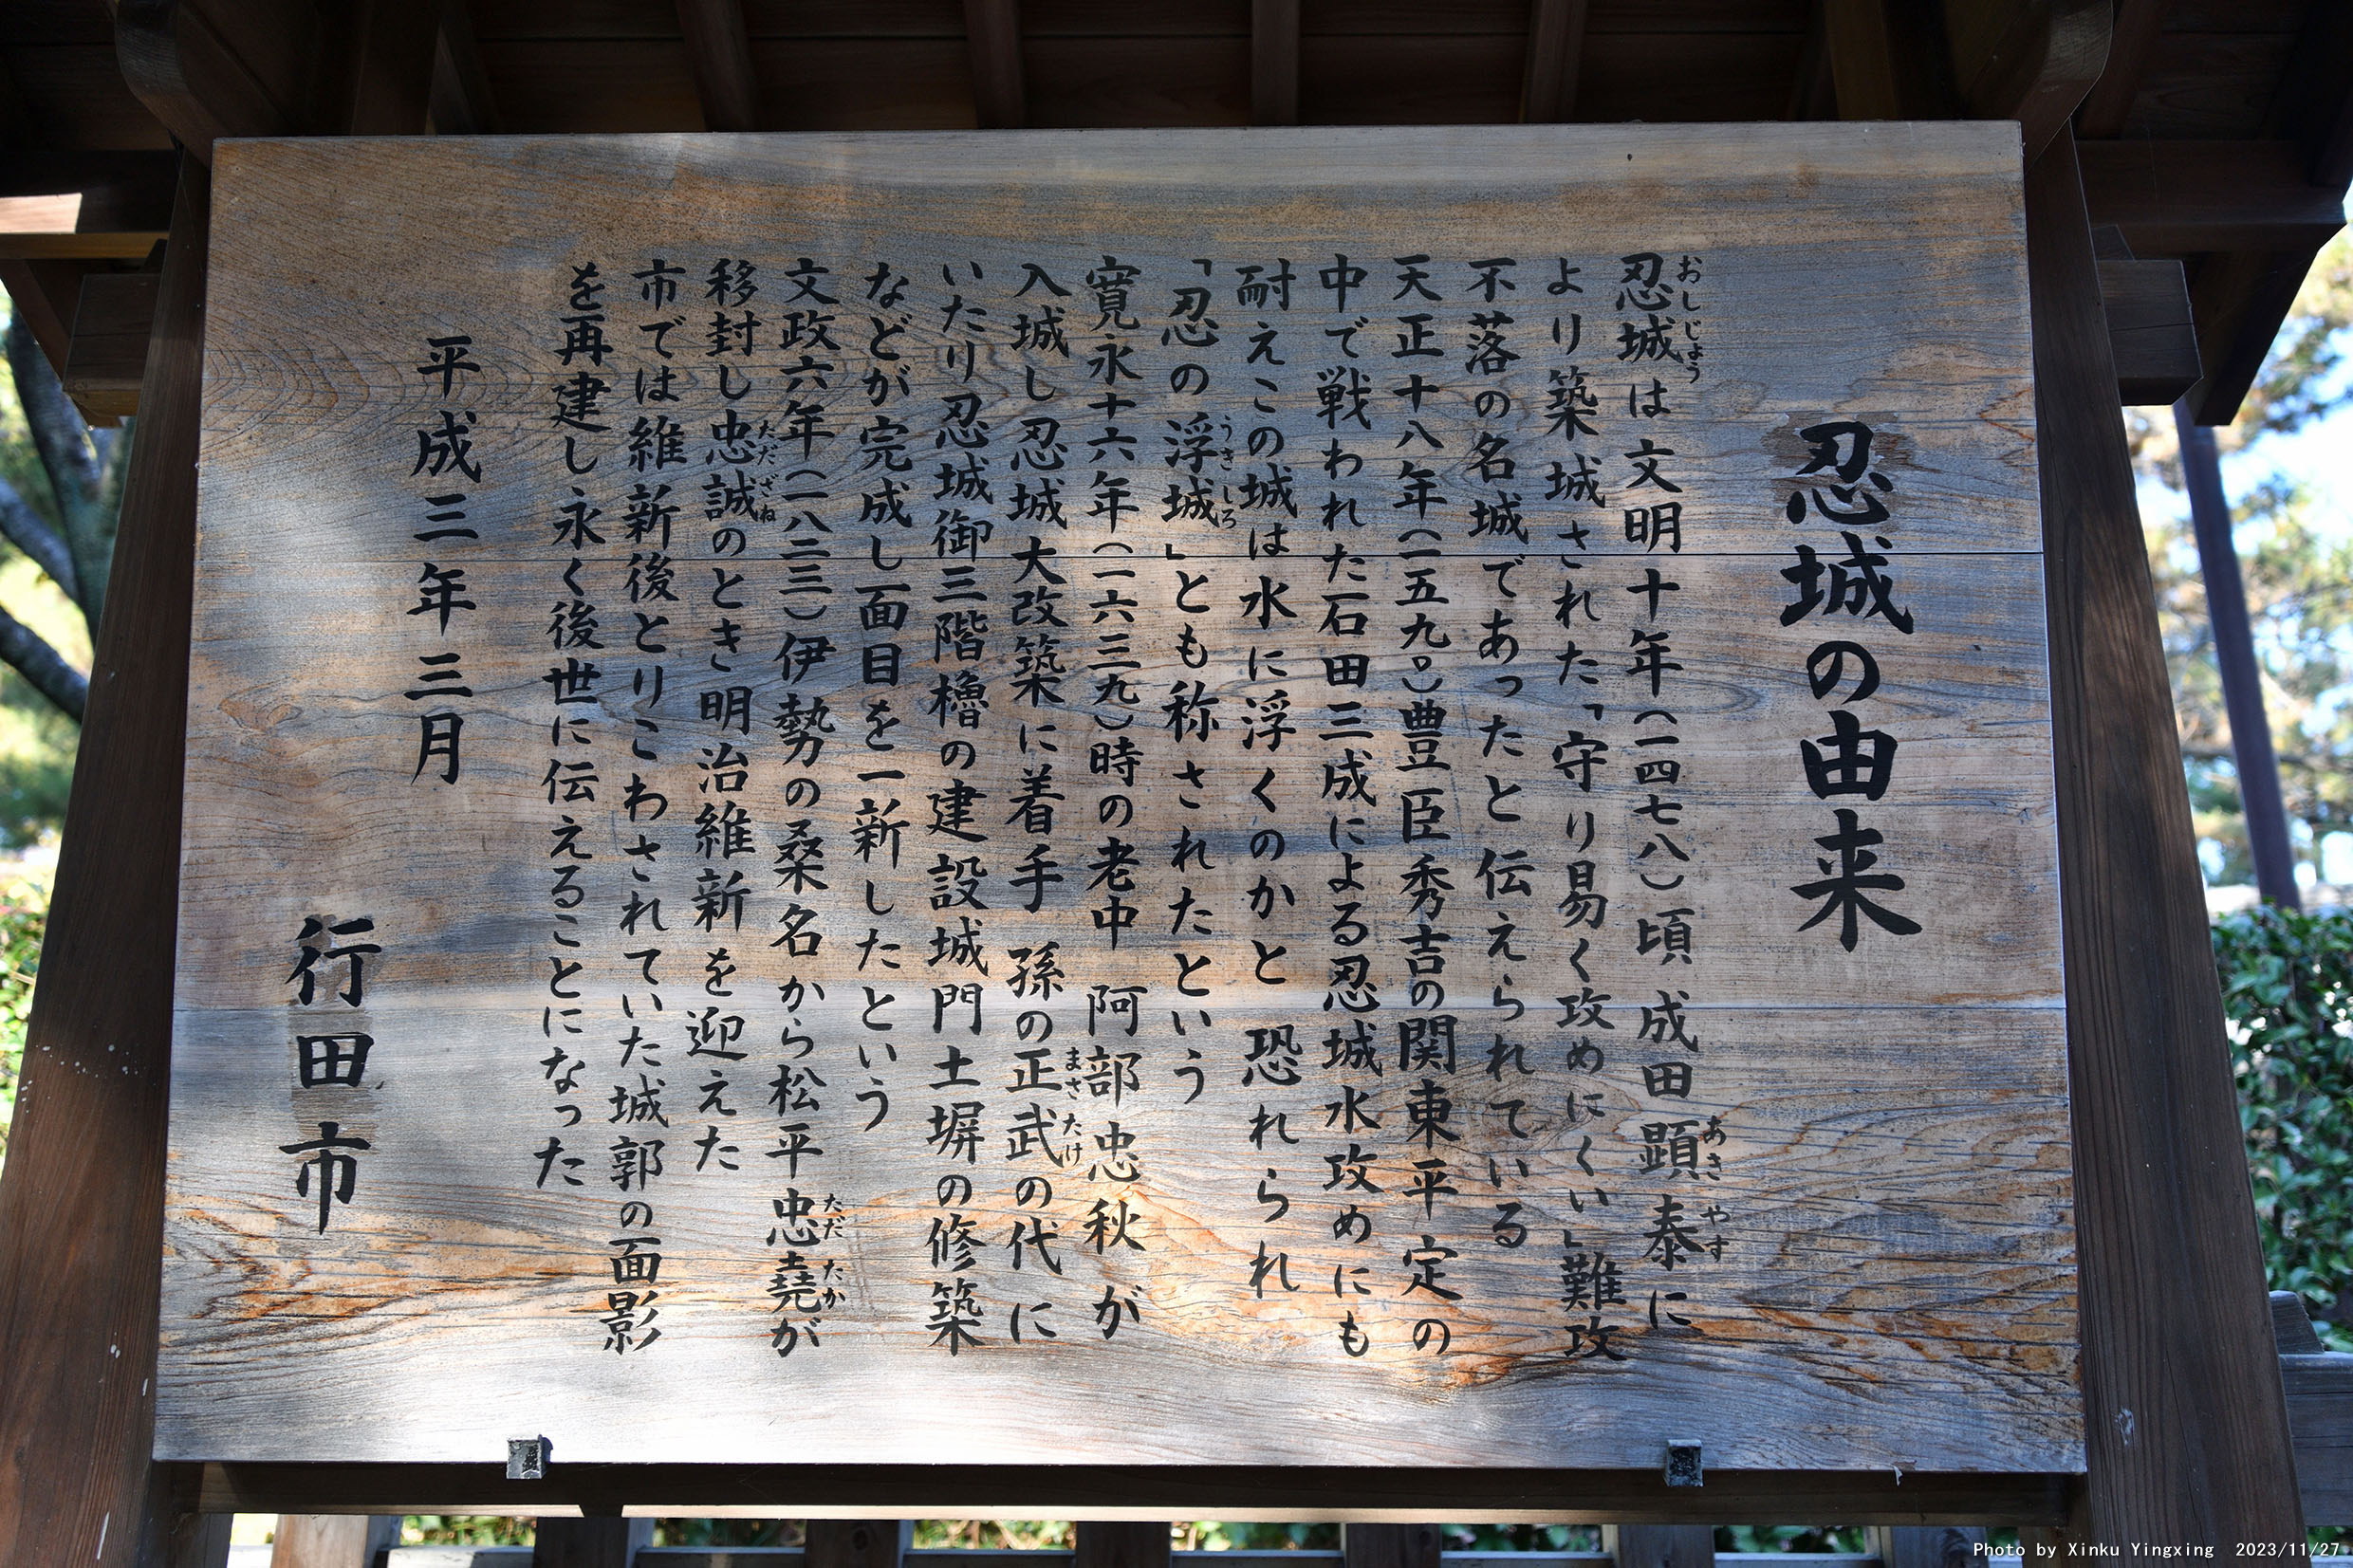 忍城の由来
忍城は文明十年(一四七八)頃 成田顕泰に
おしじょう
あきやす
より築城された「守り易く攻めにくい」難攻
不落の名城であったと伝えられている
天正十八年(一五九〇)豊臣秀吉の関東平定の
中で戦われた石田三成による忍城水攻めにも
耐えこの城は水に浮くのかと 恐れられ
「忍の浮城」とも称されたという
うきしろ
寛永十六年(一六三九)時の老中 阿部忠秋が
入城し忍城大改築に着手 孫の正武の代に
まさたけ
いたり忍城御三階櫓の建設城門土塀の修築
などが完成し面目を一新したという
文政六年(一八二三)伊勢の桑名から松平忠堯が
ただたか
移封し忠誠のとき明治維新を迎えた
ただざね
市では維新後とりこわされていた城郭の面影
を再建し永く後世に伝えることになった
平成三年三月
行田市
Photo by Xinku Yingxing 2023/11/27